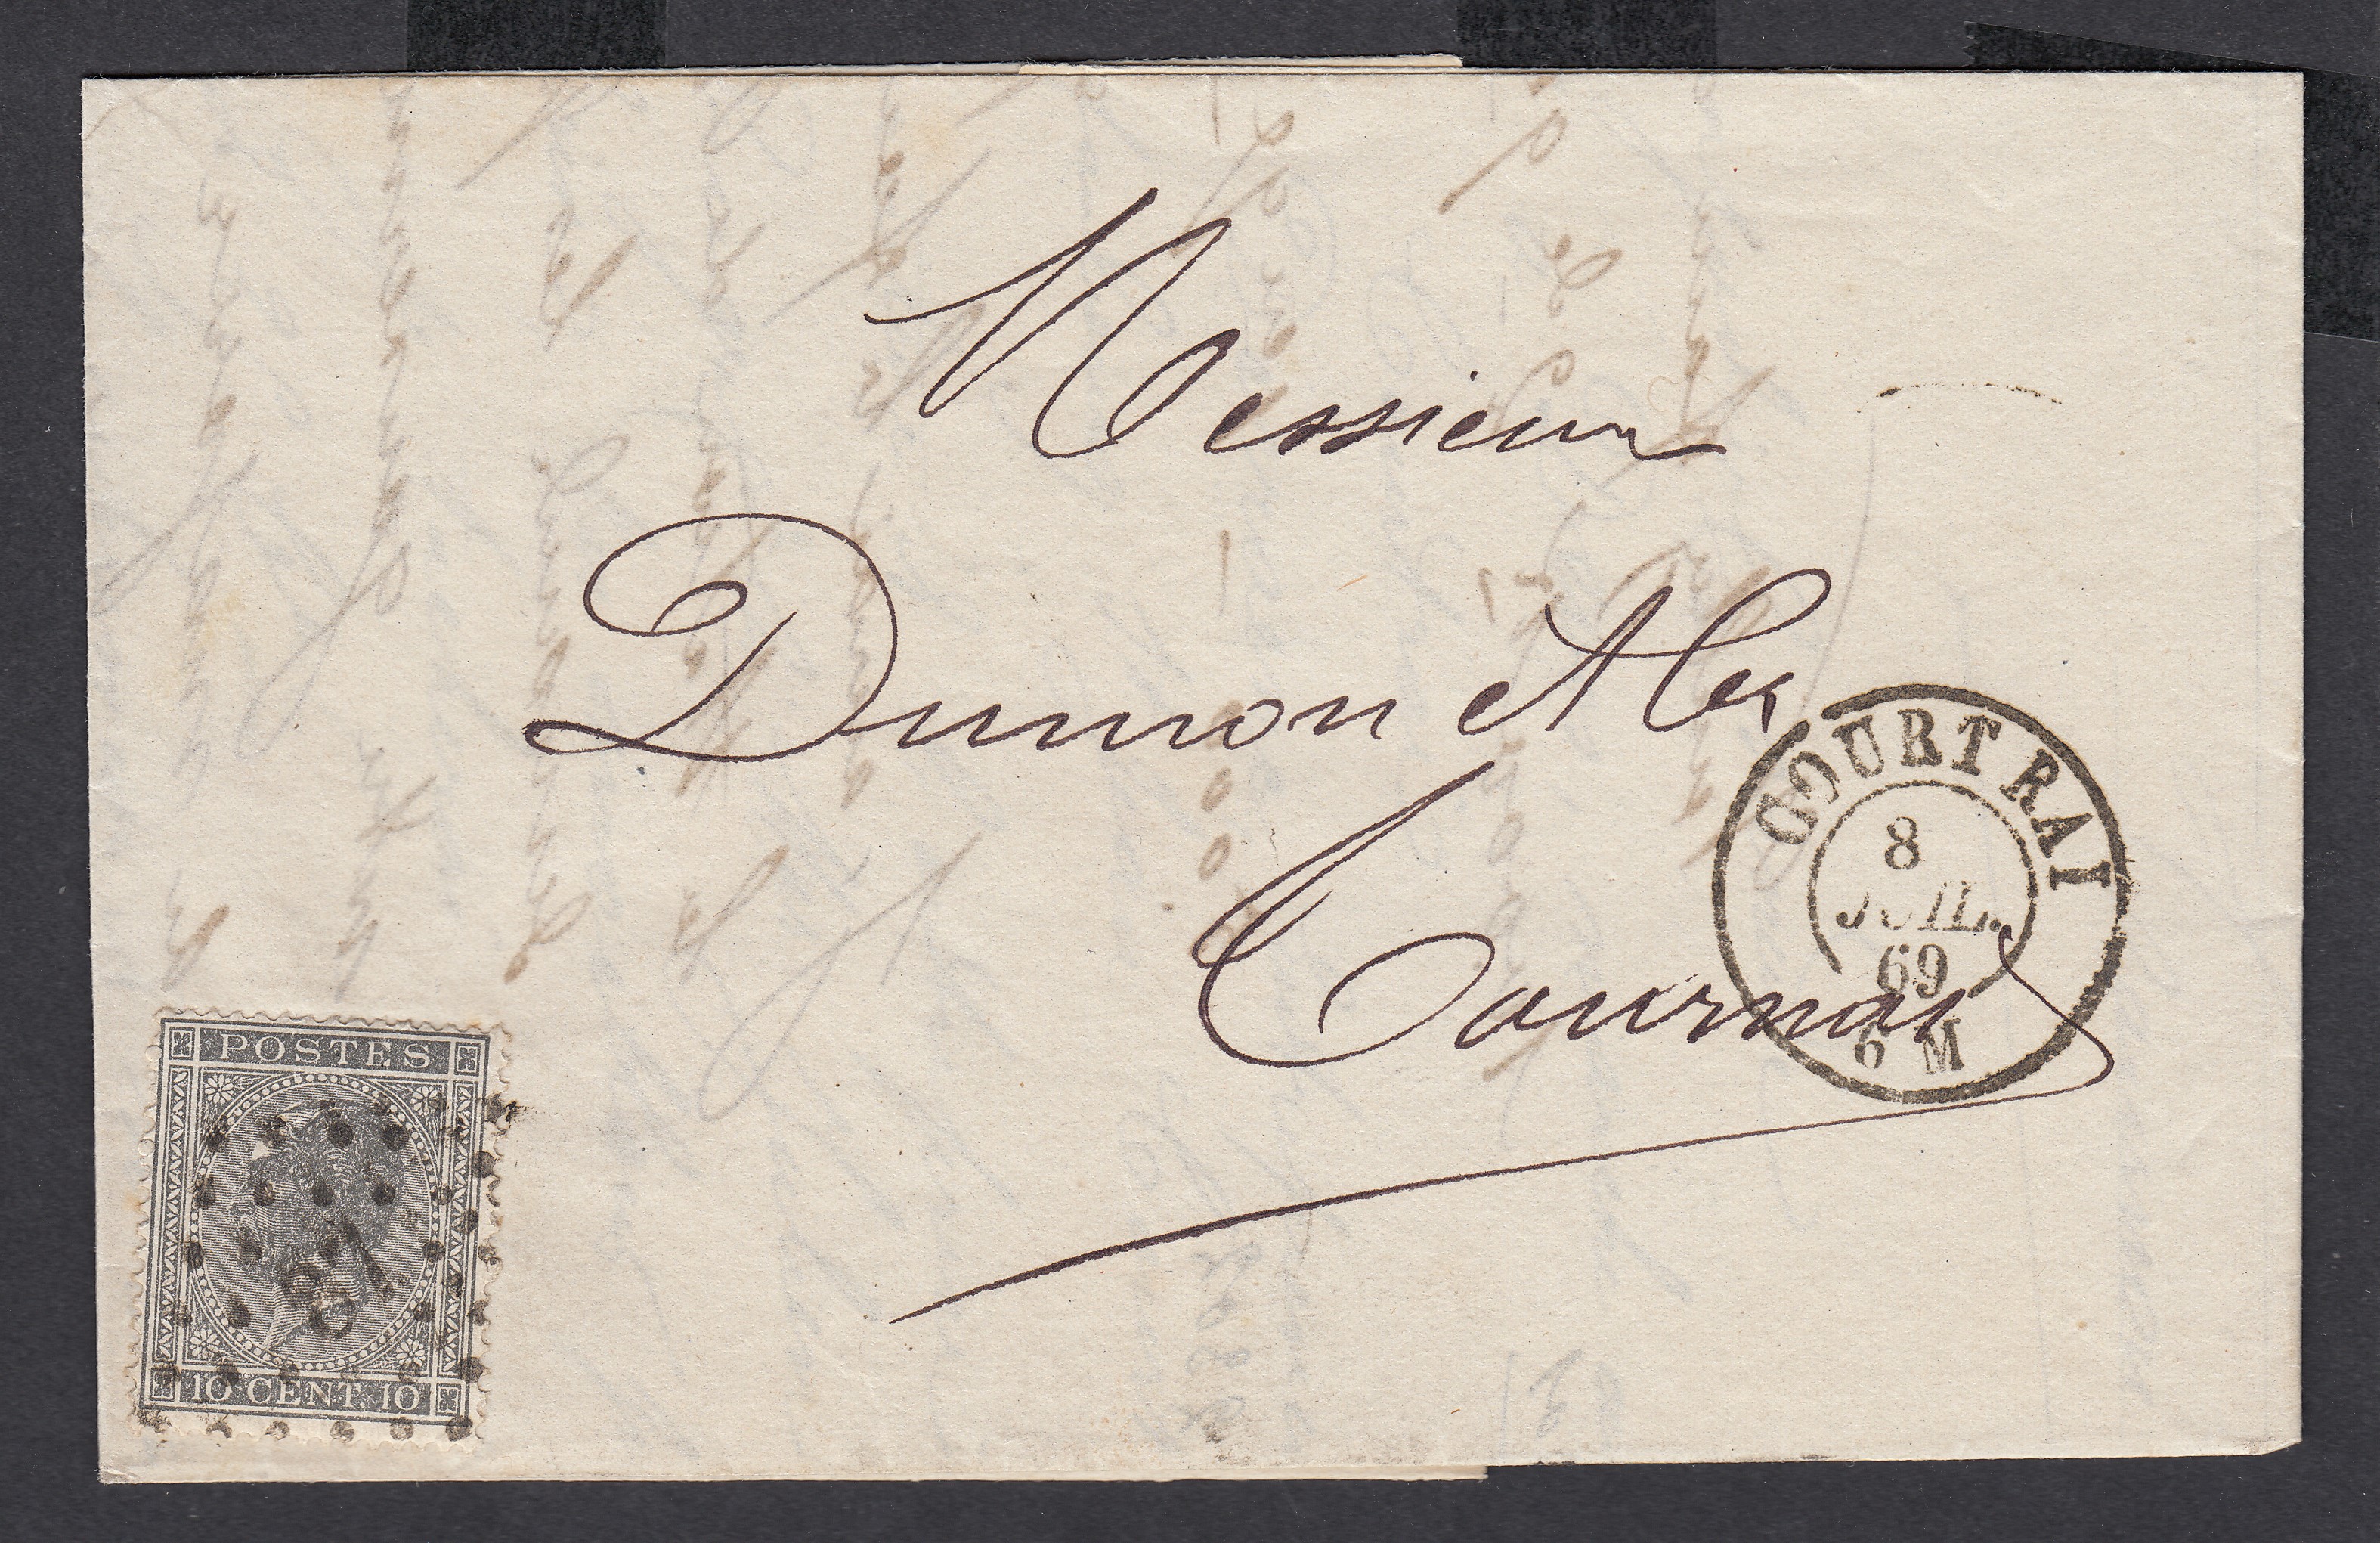 Messieurs
Dumon et Cie
Tournai
COURTRAI
8
JUIL.
69
6 M
POSTES
87
10 CENT. 10